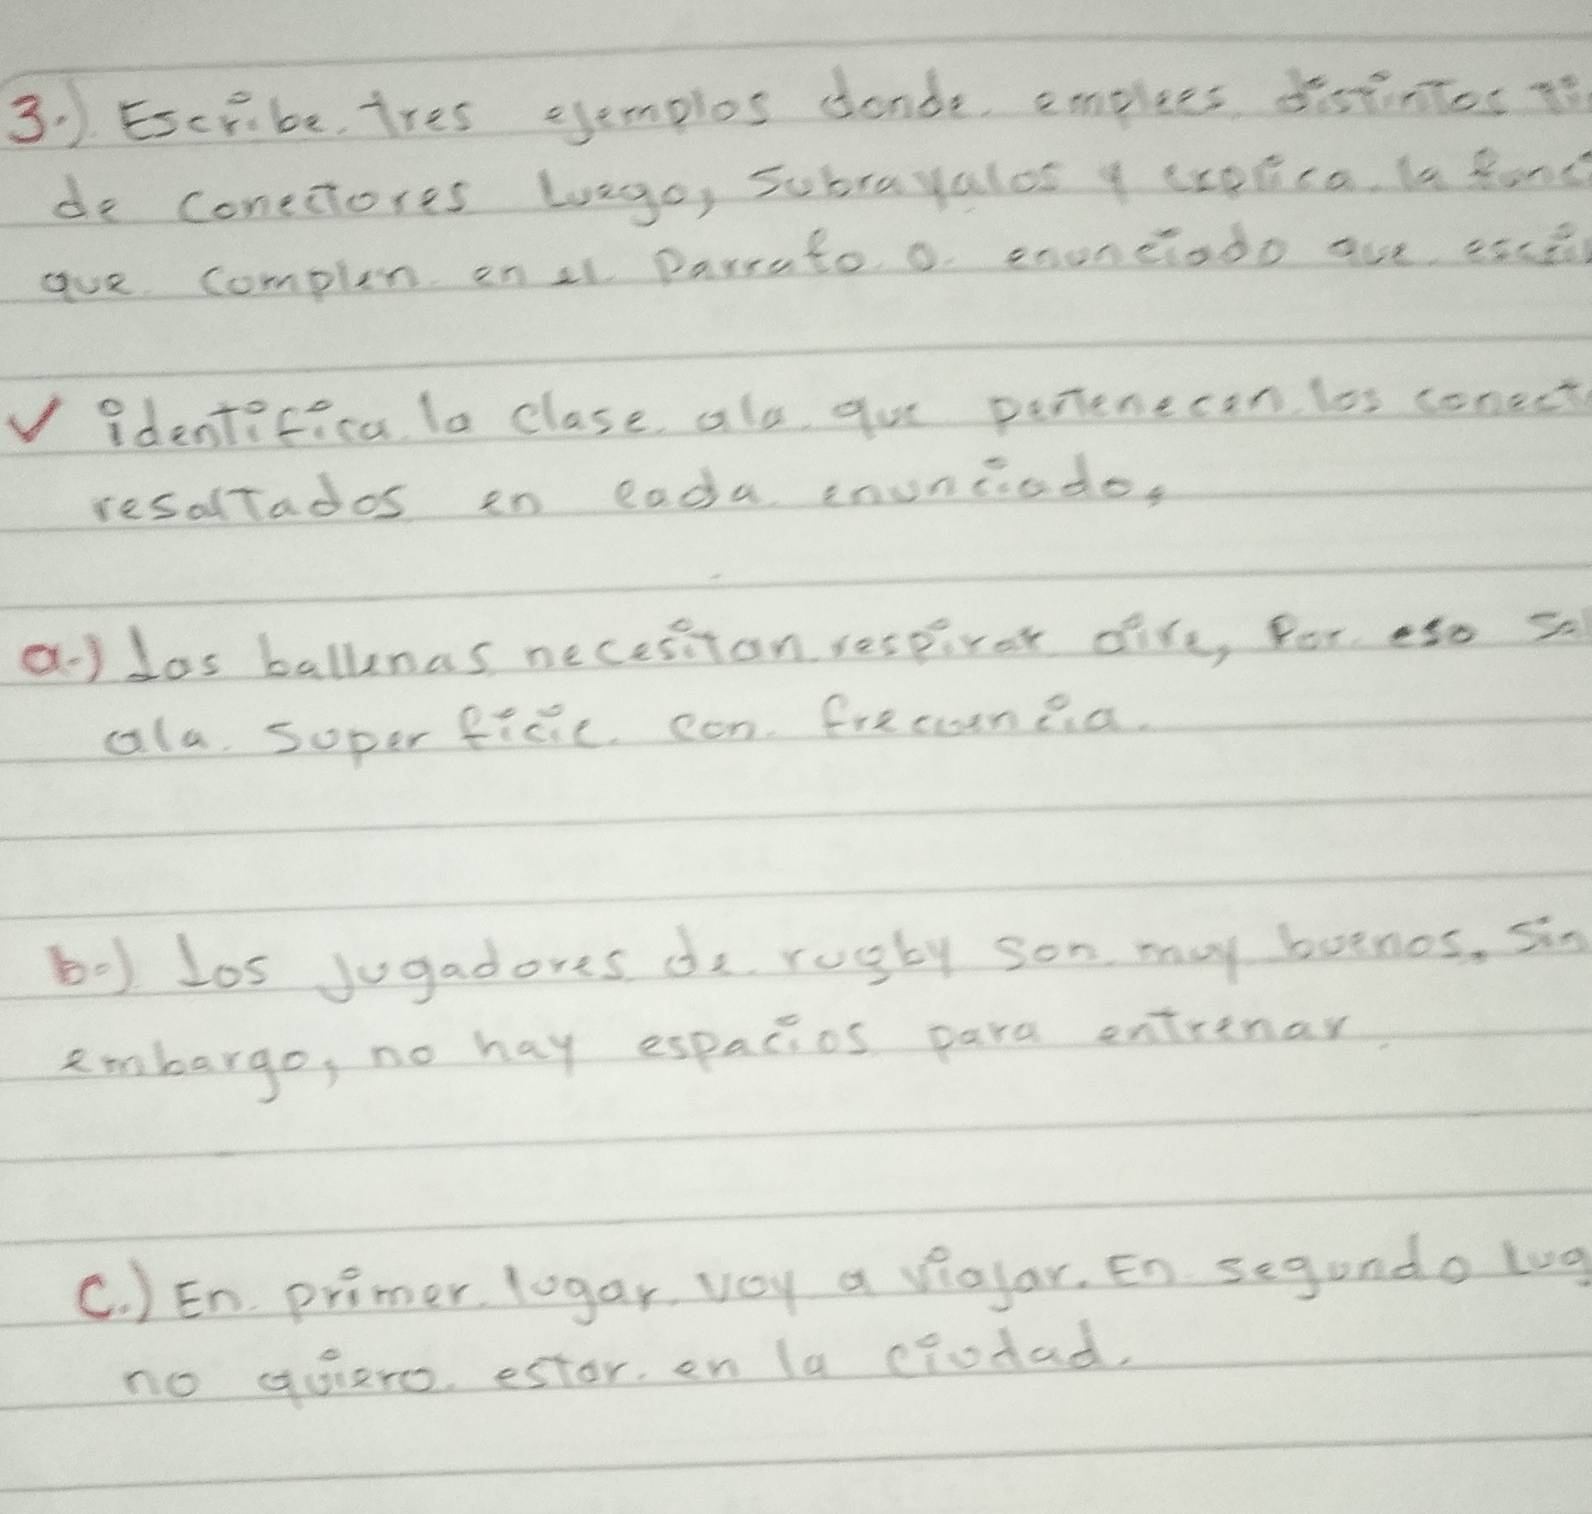 3.) Escribe tres ejemplos donde emplees distintos ti
de conectores luego, subrayalos y explica la funci
que complen en el Parrafo o enunciado que escri
✓ identifica la clase ala que pertenecen los conect
resaltados en cada enunciado.
a.) Las ballenas necesitan respirar aire, Por eso sal
ala superficie con frecuencia.
b.) Los Jugadores de rugby son muy buenos. Sin
embargo, no hay espacios para entrenar.
C.) En primer lugar voy a viajar. En segundo lug
no quiero estar en la ciudad.